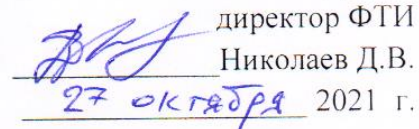 директор ФТИ
Николаев Д.В.
27 октября 2021 г.